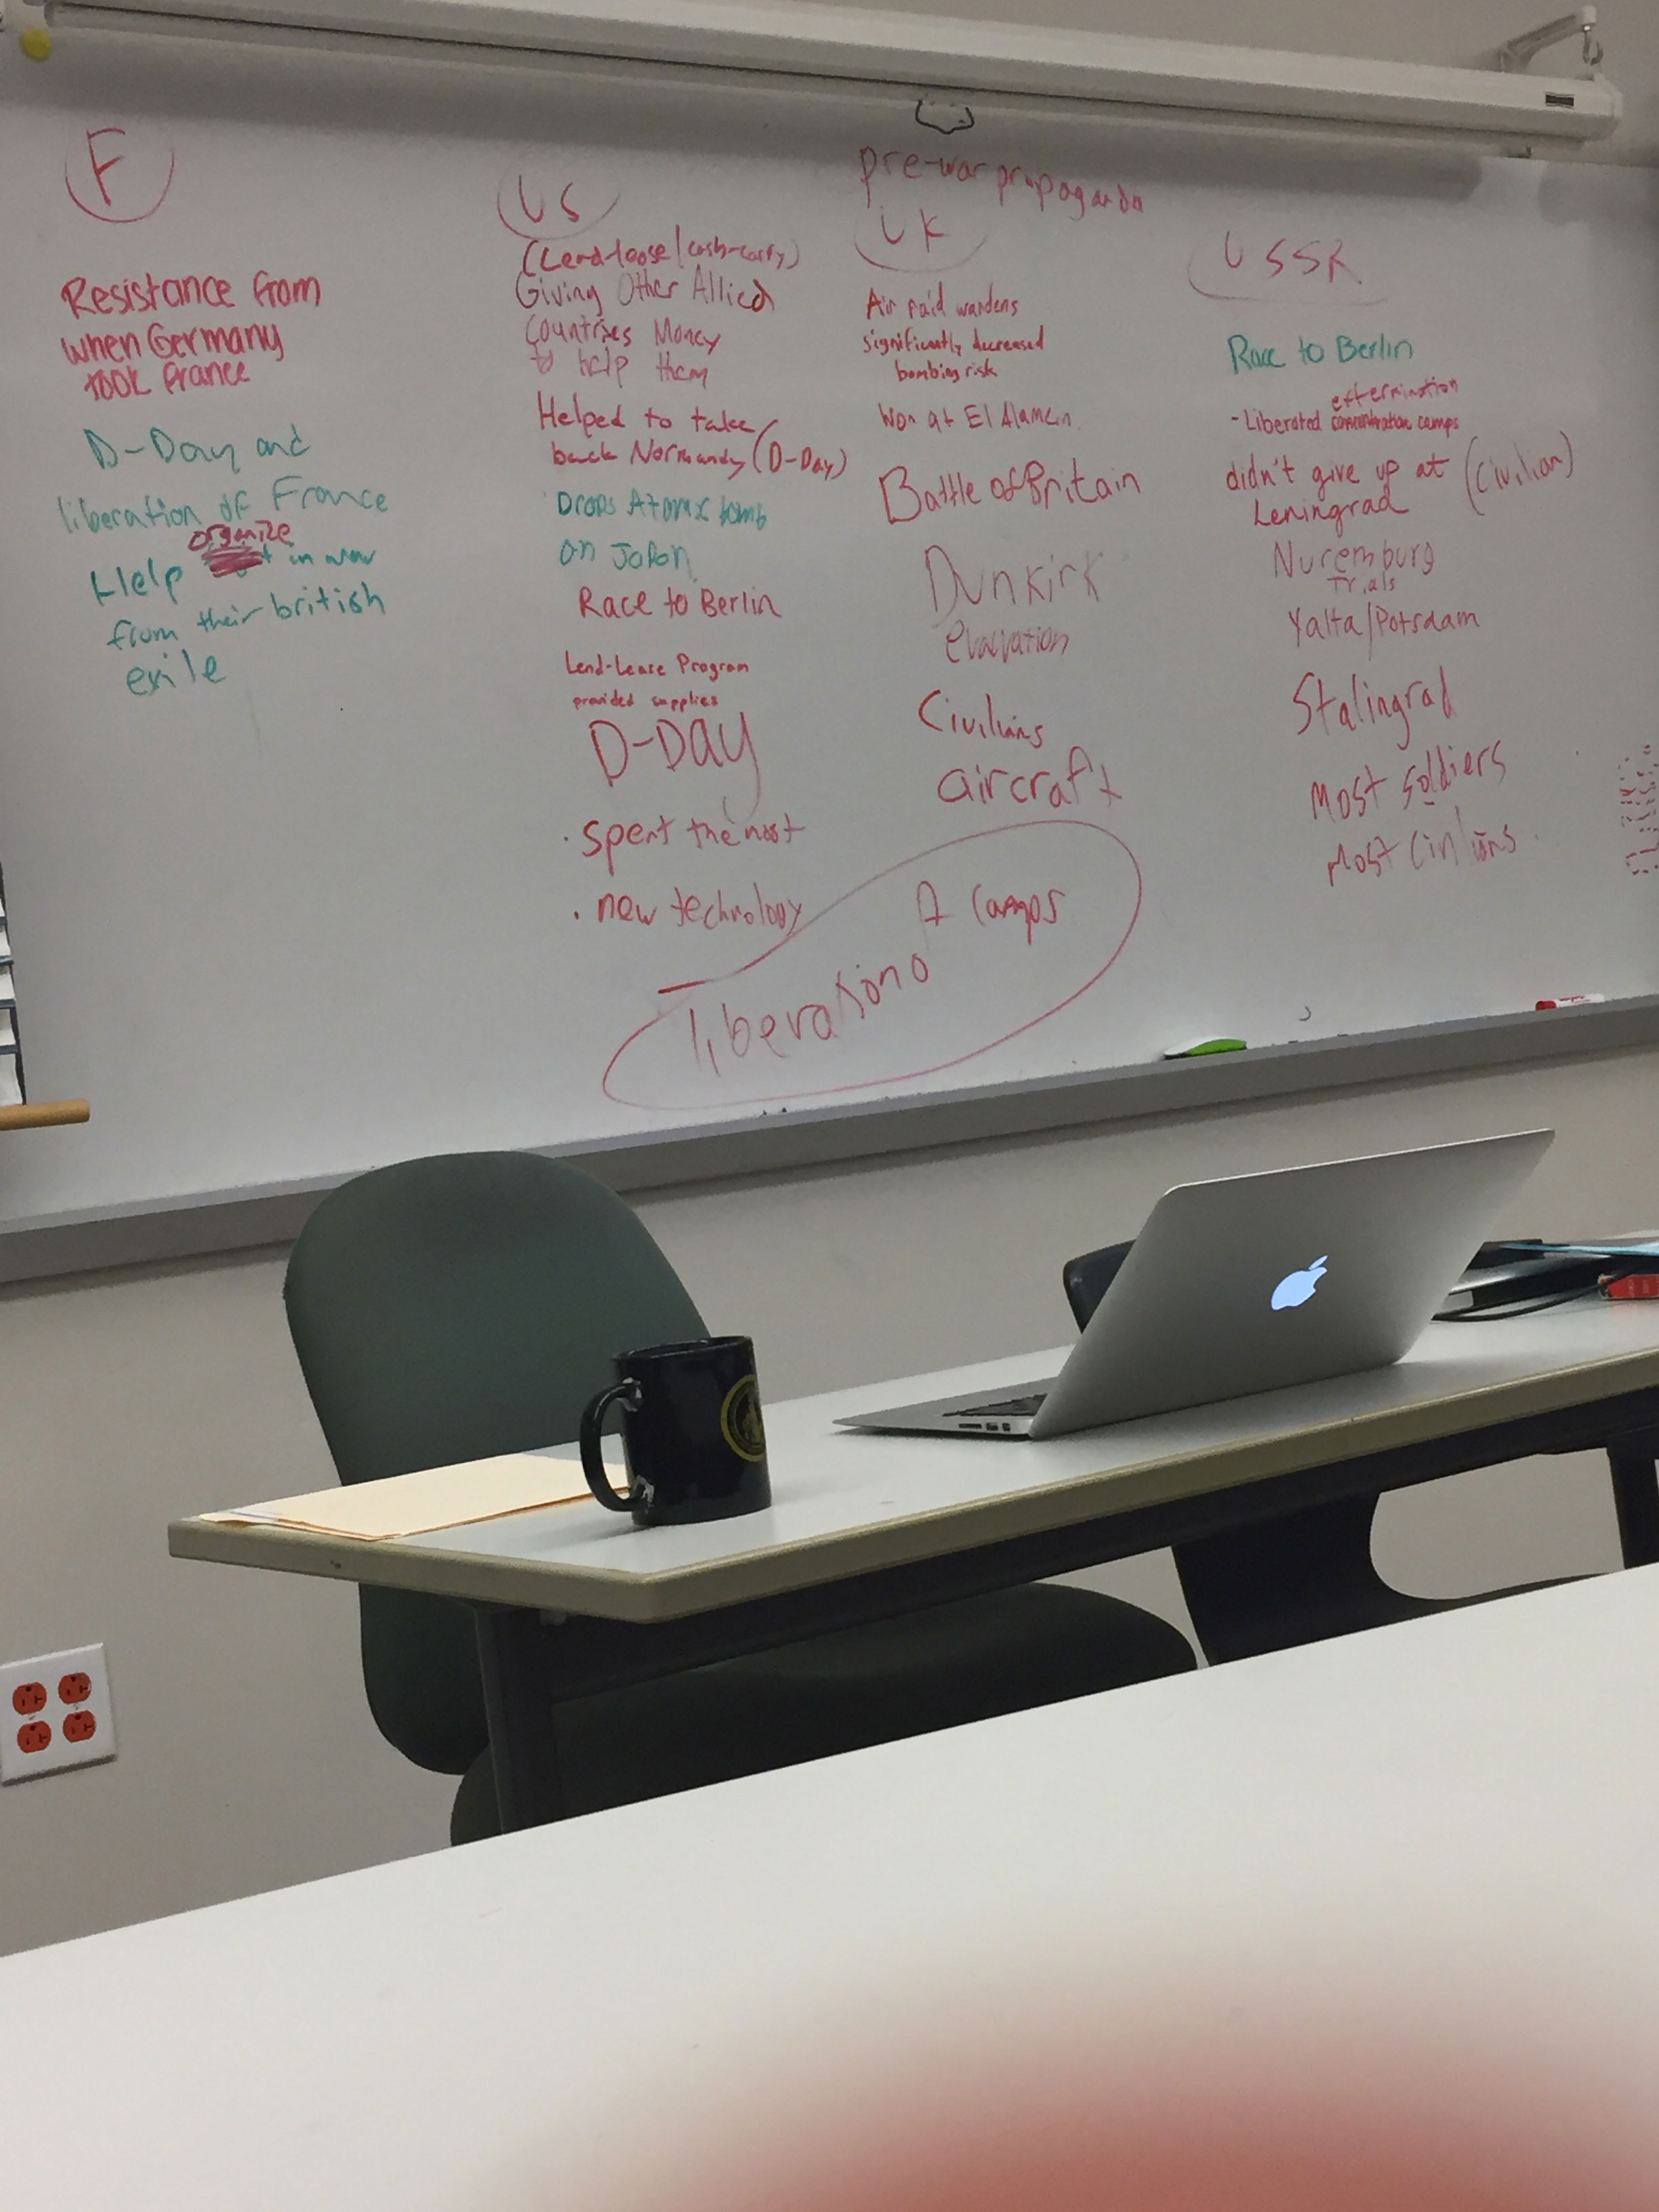 F
Resistance from
when Germany
took france
D-Day and
liberation of France
organize
Help in war
from their british
exile
US
(Lend-loose/cash-carry)
Giving Other Allied
Countries Money
to help them
Helped to take
back Normandy (D-Day)
Drops Atomic bomb
on Japan
Race to Berlin
Lend-Lease Program
provided supplies
D-DAY
. spent the most
. new technology
pre-war propaganda
UK
Air raid wardens
significantly decreased
bombing risk
Won at El Alamein.
Battle of Britain
Dunkirk
evacuation
Civilians
aircraft
liberation of camps
USSR
Race to Berlin
extermination
- Liberated concentration camps
didn't give up at (civilian)
Leningrad
Nuremburg
Trials
Yalta/Potsdam
Stalingrad
Most soldiers
Most civilians